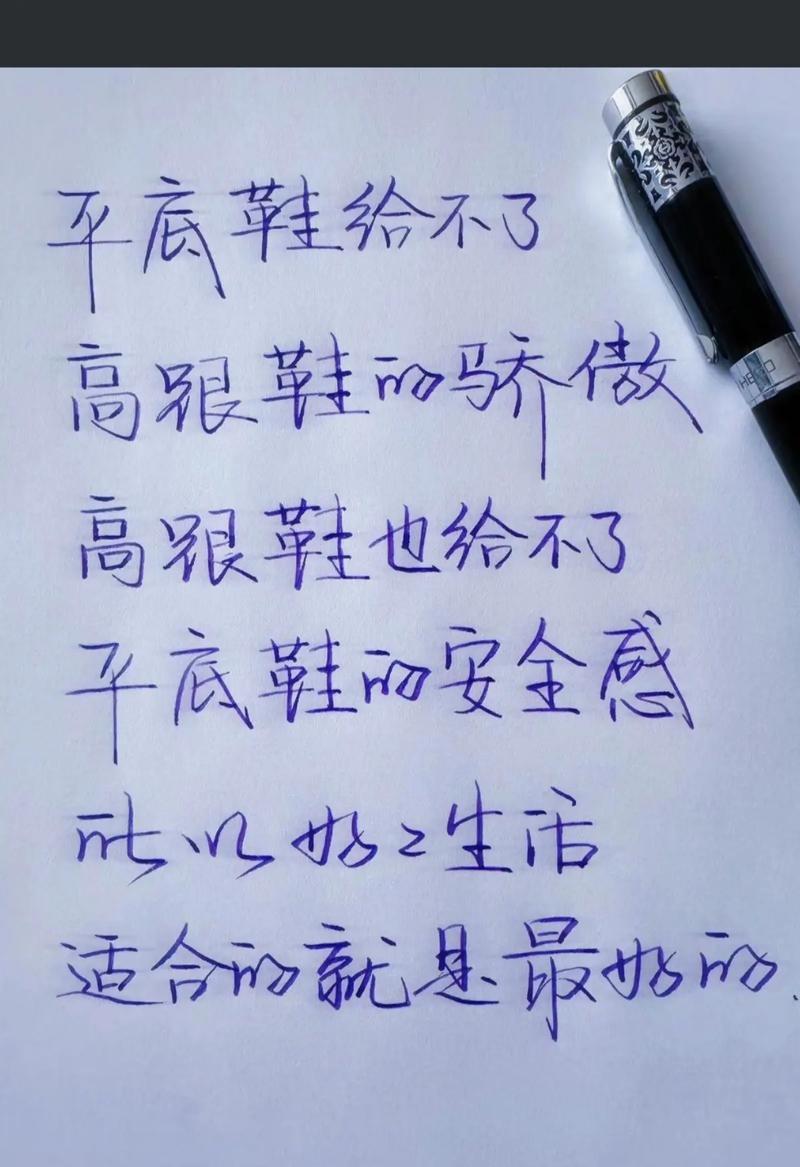 平底鞋给不了
高跟鞋的骄傲
高跟鞋也给不了
平底鞋的安全感
所以好々生活
适合的就是最好的.
HERO